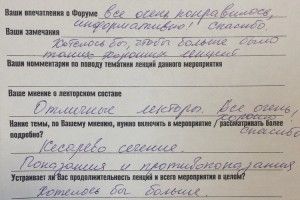 Ваши впечатления о Форуме Все очень понравилось,
информативно! Спасибо
Ваши замечания
Хотелось бы, чтобы больше было
таких хороших лекций
Ваши комментарии по поводу тематики лекций данного мероприятия
Ваше мнение о лекторском составе
Отличные лекторы. Все очень
хорошо
Какие темы, по Вашему мнению, нужно включить в мероприятие / рассматривать более
подробно? спасибо
Кесарево сечение.
Показания и противопоказания
Устраивает ли Вас продолжительность лекций и всего мероприятия в целом?
Хотелось бы больше